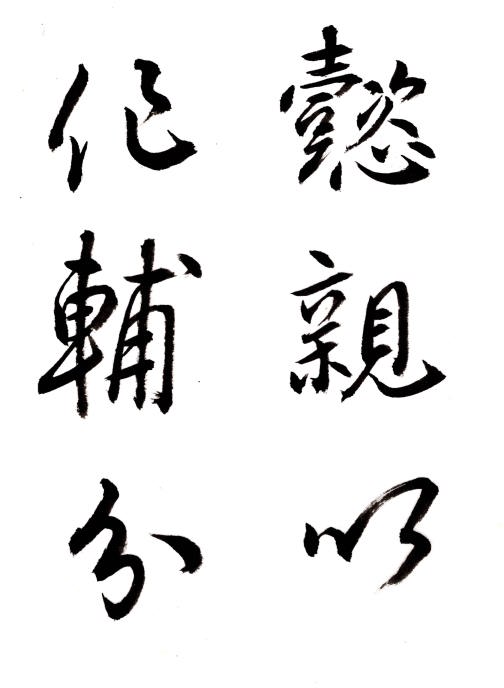 懿親以
作輔分